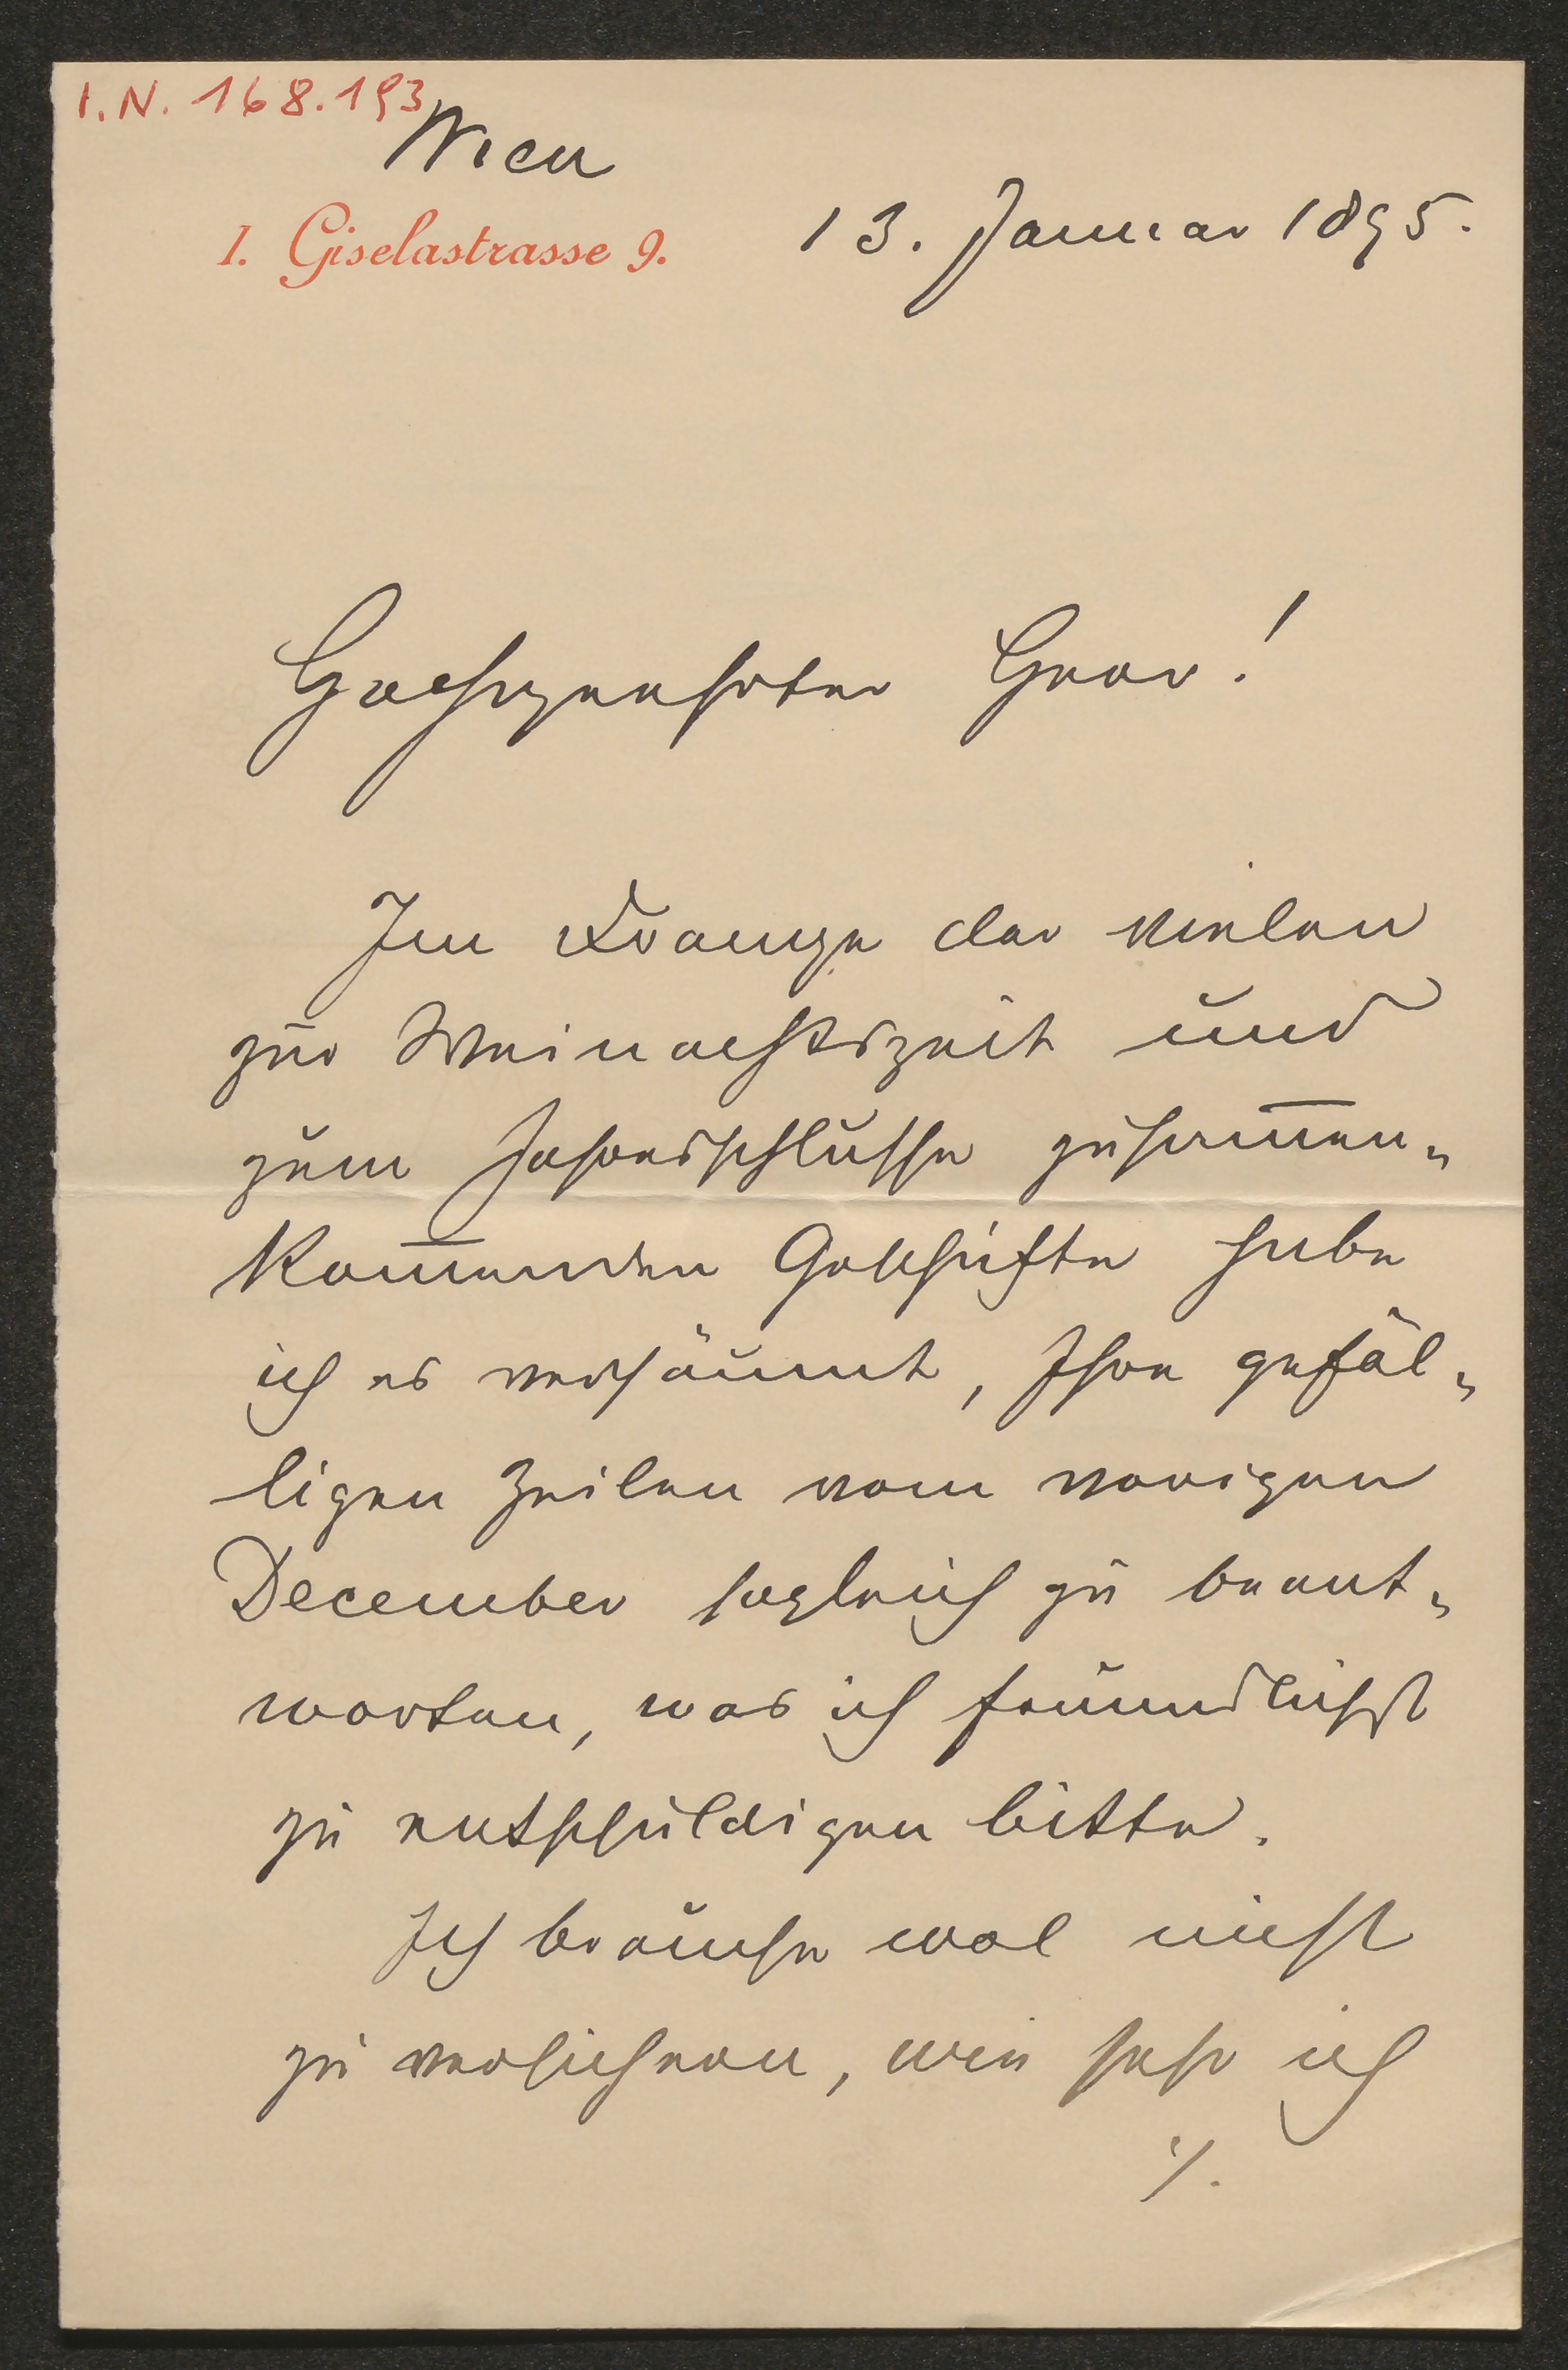 I.N. 168.193
Wien
I. Giselastrasse 9.
13. Januar 1895.
Hochgeehrter Herr!
Im Drange der vielen
zur Weinachtszeit und
zum Jahresschlusse zusam̅en-
kom̅enden Geschäfte habe
ich es versäumt, Ihre gefäl-
ligen Zeilen vom vorigen
December sogleich zu beant-
worten, was ich freundlichst
zu entschuldigen bitte.
Ich brauche wol nicht
zu versichern, wie sehr ich
./.